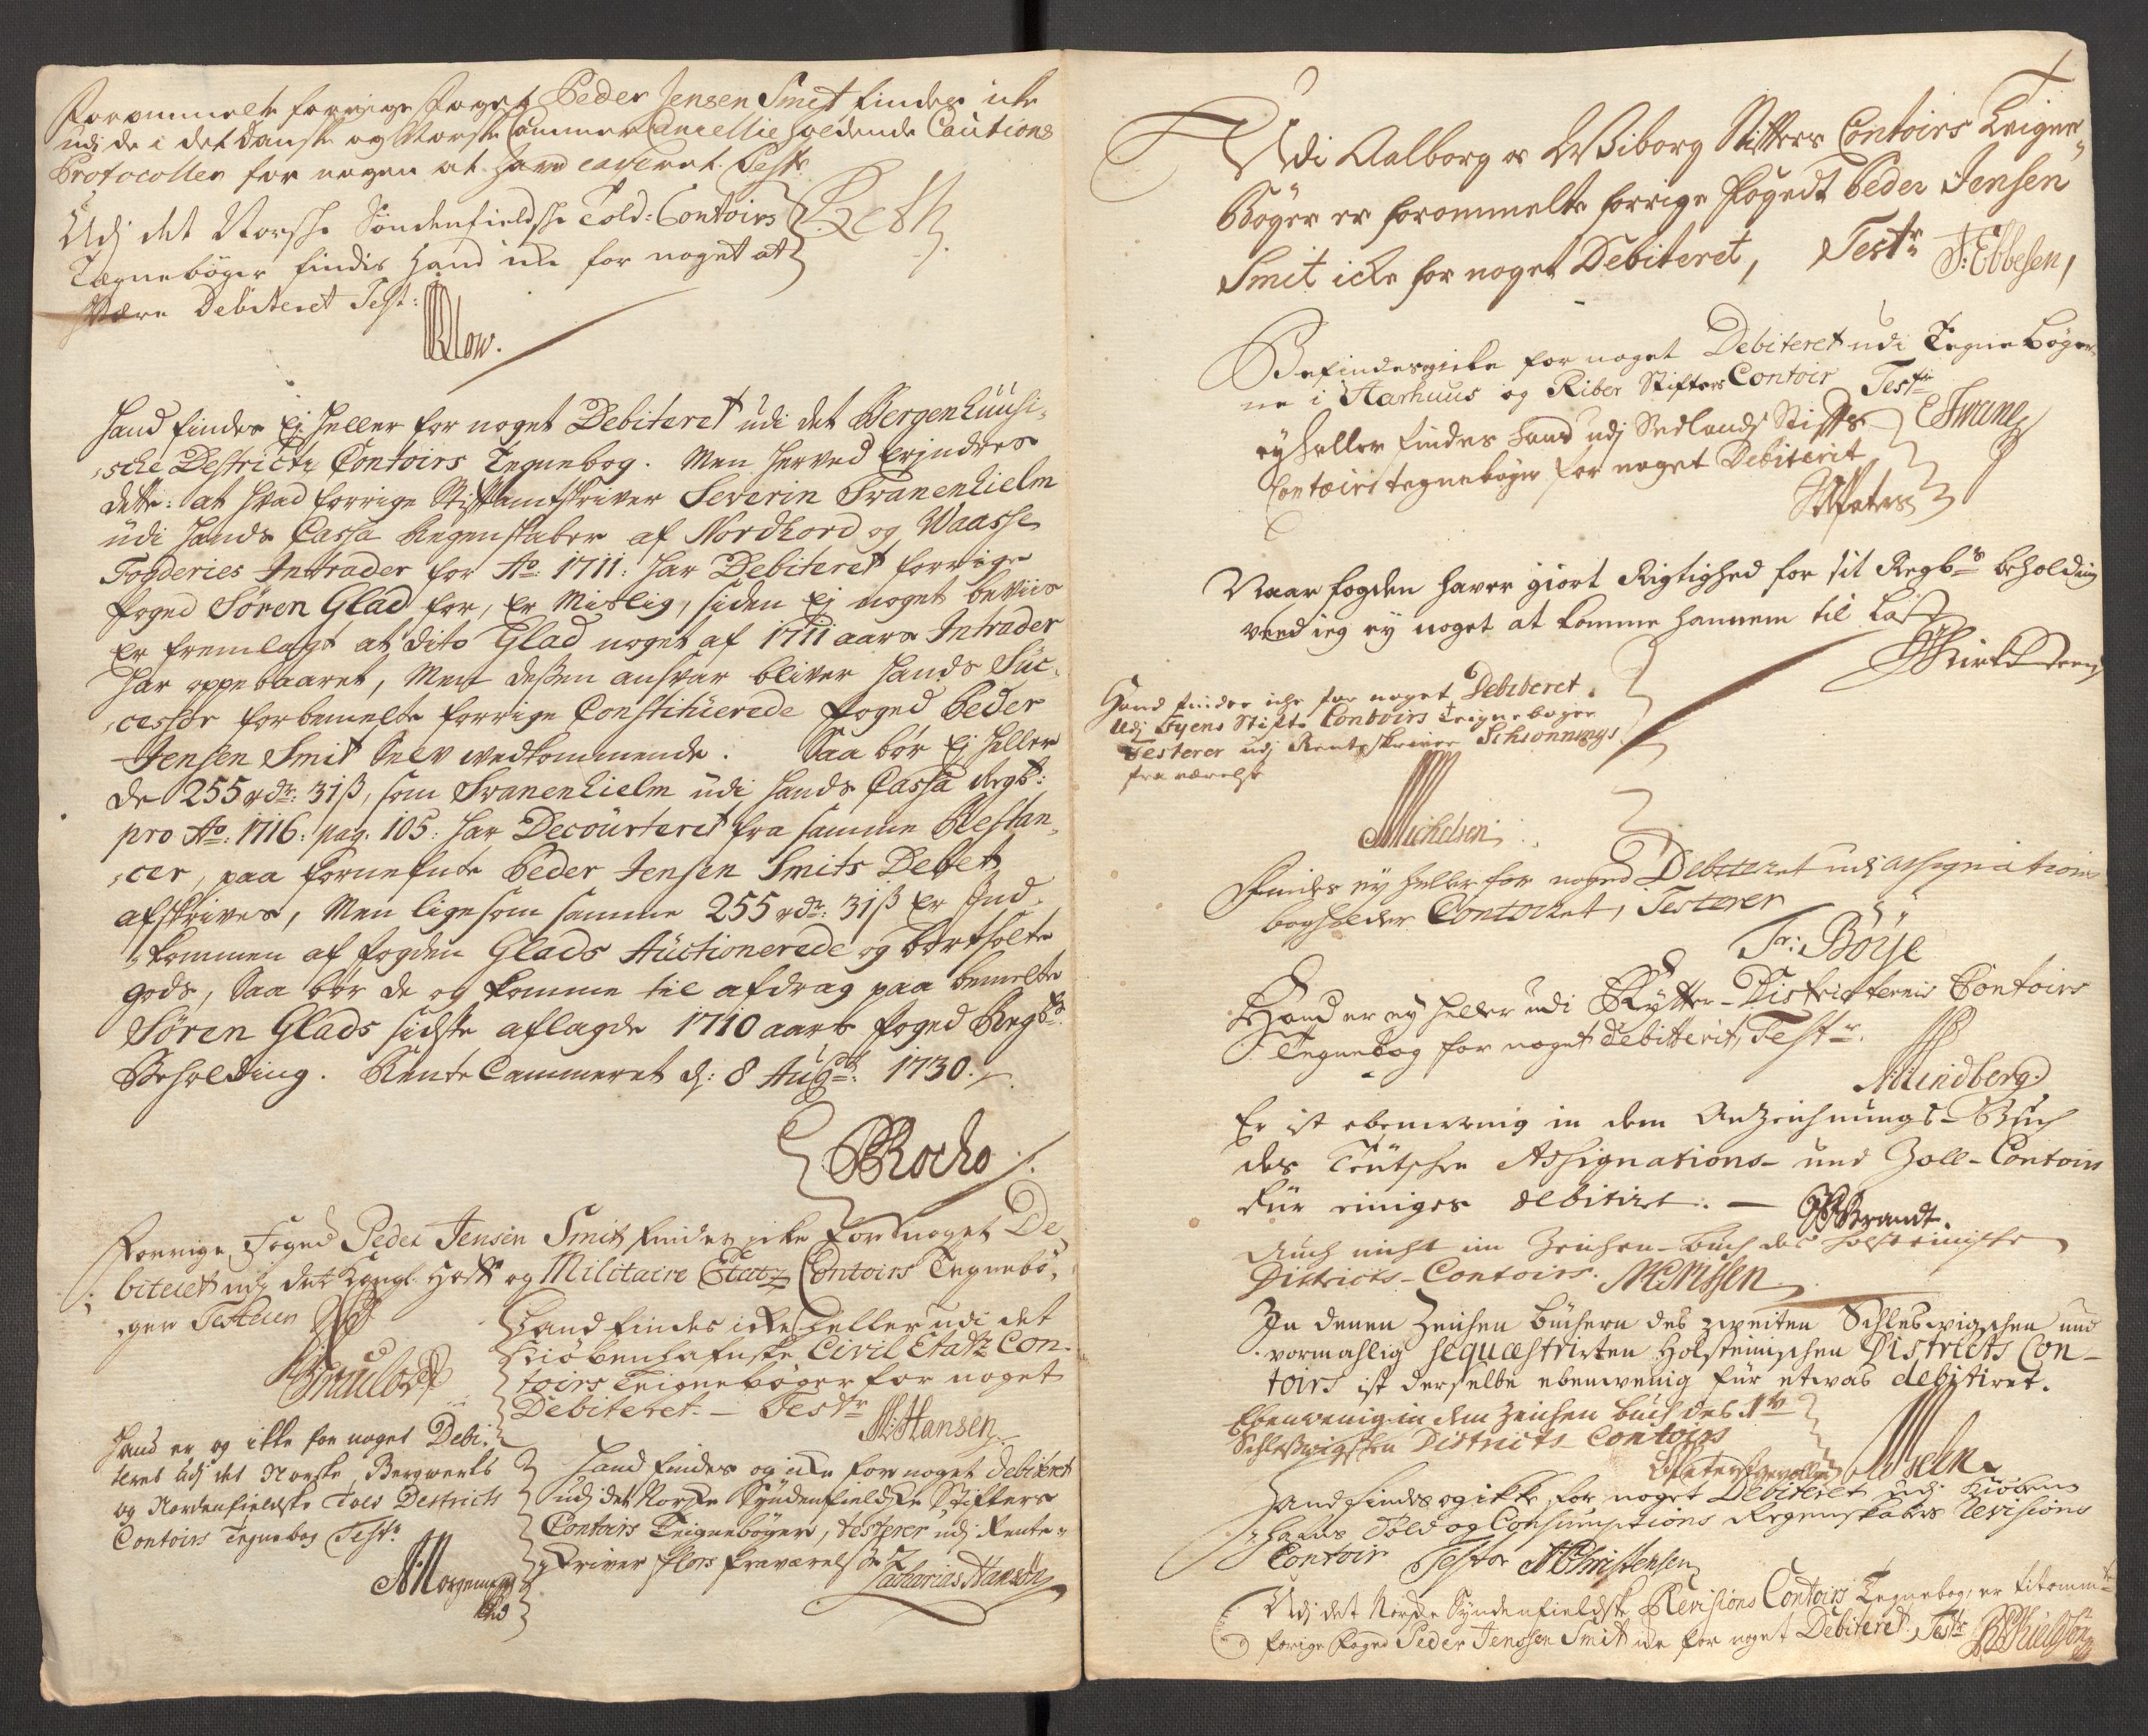 Forommelte forrige Foget Peder Jensen Smit findes icke
udi de i det danske og Norske Cammer Cancellie holdende Cautions
Protocoller for nogen at have caveret. Test:
Udj det Norske Søndenfieldske Told: Contoirs
Tegnebøger findis hand icke for noget at
Være Debiteret Test:
Hand findes Ej heller for noget Debiteret udi det Bergenhuusi-
sche Destrictz Contoirs Tegnebog. Men herved Erindres
dette: at hvad forrige Stiftamtskriver Severin Svanenhielm
udi hands Cassa Regenskaber af Nordhord og Waasse
Fogderies Intrader for Ao: 1711: har Debiteret forrige
foged Søren Glad for, Er Mislig, siden Ej noget beviis
Er fremlagt at dito Glad noget af 1711 aars Intrader
har oppebaaret, Men dessen ansvar bliver hands Suc-
cessor forbemelte forrige Constituerede foged Peder
Jensen Smit Selv vedkommende. Saa bør Ej heller
de 255 rdr: 31 ß, som Svanenhielm udi hands Cassa Regb:
pro Ao: 1716: pag. 105: har Decourteret fra samme Restan-
cer, paa fornefnte Peder Jensen Smits Debet
afskrives, Men ligesom samme 255 rdr: 31 ß Er Ind-
kommen af fogden Glads Auctionerede og bortsolte
gods, Saa bør de og komme til afdrag paa bemelte
Søren Glads sidste aflagde 1710 aars foged Regbs
Beholding. Rente Cammeret d: 8 Augt: 1730.
Rocho
Forrige Foged Peder Jensen Smit findes icke for noget De-
biteret udj det Kongl: Hoff og Militaire Etatz Contoirs Tegnebø-
ger Testerer
Hand findes icke heller udi det
Kiøbenhafnske Civil Etatz Con-
toirs Teignebøger for noget
Debiteret. — Testr
Hansen
Hand er og ikke for noget Debi-
teret udj det Norske Bergwerks
og Nordenfieldske Told Districts
Contoirs Tegnebog Testr
Hand findes og icke for noget debiteret
udj det Norske Syndenfieldske Stifters
Contoirs Teignebøger, testerer udj Rente-
skriver Flors fraværelse
Zacharias Hansen
Udi Aalborg oc Wiborg Stifters Contoirs Teigne-
Bøger er forommelte forrige fogedt Peder Jensen
Smit icke for noget Debiteret, Testr J: Ebbesen,
Befindes icke for noget Debiteret udi Tegne Bøger-
ne i Aarhuus og Riber Stifters Contoir Testr
ey heller findes hand udj Sædlands Stifts
Contoirs tegnebøger for noget Debiterit
Naar fogden haver giort Rigtighed for sit Regbs beholding
veed ieg ey noget at komme hannem til Last
Hand findes icke for noget Debiteret
Udj Fyens Stifts Contoirs Teignebøger
Testerer udj Rentskriver Schionnings
fraværelse
Michelsen
Findes ey heller for noged Debiteret udi assignations
bogholder Contoiret, Testerer
Fr: Börje
Hand er ey heller udi Rytter-Districternis Contoirs
Tegnebog for noget debitterit, Testr.
Lindberg
Er ist ebenwenig in dem Anzeichnungs-Buch
des Teutschen Assignations- und Zoll-Contoirs
für einiges debitiret. — Brandt.
Auch nicht im Zeichen-buch des Holsteinischen
Districts-Contoirs. Nissen
In denen Zeichen büchern des zweiten Schleswigschen und
vormahlig sequestrirten Holsteinischen Districts Con-
toirs ist derselbe ebenwenig für etwas debitiret.
Ebenwenig in dem Zeichen buch des 1ten
Schleswigschen Districts Contoirs
Hand findes og ikke for noget Debiteret udj Kiøben-
hafns Told og Consumptions Regenskabers Revisions
Contoir Testor Christensen
Udj det Norske Syndenfieldske Revisions Contoirs Tegnebog, er titommte
forige Foged Peder Jenssen Smit icke for noget Debiteret, Testr